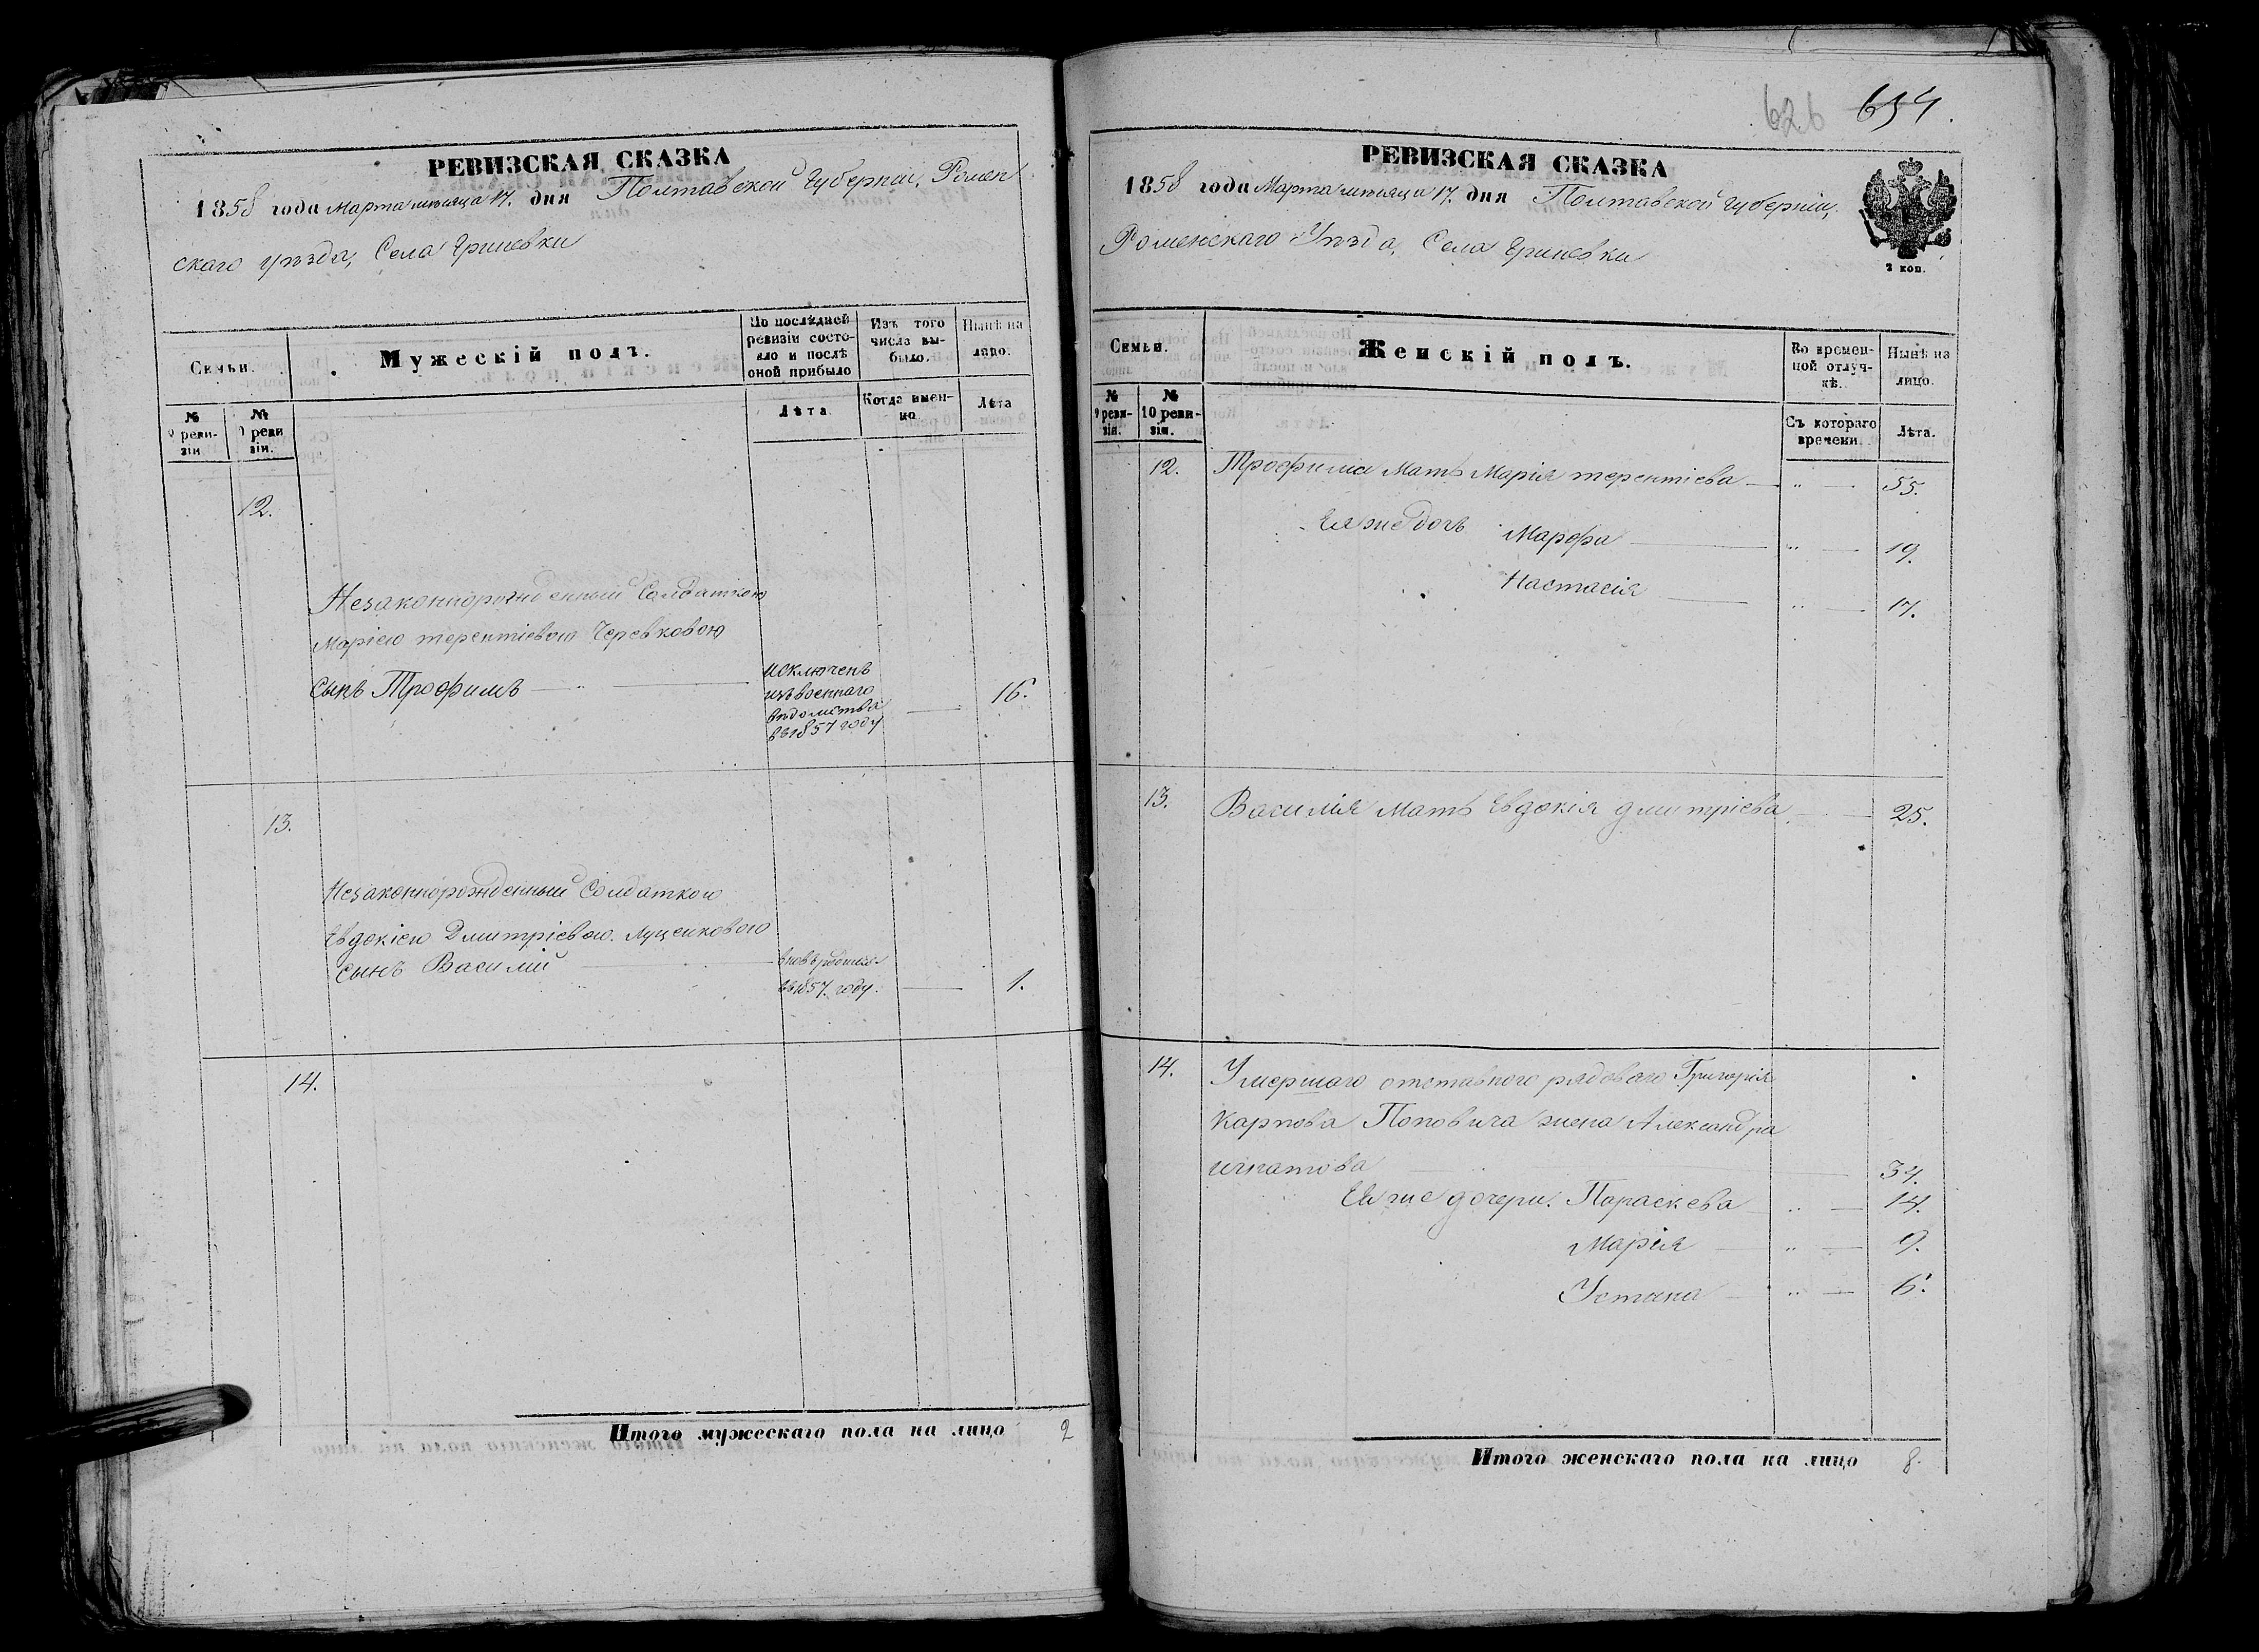 РЕВИЗСКАЯ СКАЗКА
1858 года Марта мѣсяца 17. дня Полтавской Губерніи, Ромен
скаго уѣзда, Села Гриневки
Семьи.
Мужескій полъ.
По послѣдней
ревизіи состо-
яло и послѣ
оной прибыло
Изъ того
числа вы-
было.
Нынѣ на
лицо.
№
9 реви-
зіи
№
10 реви
зіи.
Лѣта
Когда имен-
но
Лѣта
12.
Незаконнорожденный Солдаткою
Маріею терентіевою Черевковою
сынъ Трофимъ
исключенъ
изъ военнаго
вѣдомства
въ 1857 году
16.
13.
Незаконнорожденный Солдаткою
Евдокіею Дмитріевою Луценковою
сынъ Василій
вновь рожденъ
въ 1857. году.
1.
14.
Итого мужескаго пола на лицо 2
626 654.
РЕВИЗСКАЯ СКАЗКА
1858 года Марта мѣсяца 17. дня Полтавской Губерніи,
Роменскаго Уѣзда, Села Гриневки
2 коп.
Семьи.
Женскій полъ.
Во времен-
ной отлуч-
кѣ.
Нынѣ на
лицо.
№
9 реви-
зіи.
№
10 реви-
зіи.
Съ котораго
времени.
Лѣта.
12. Трофима Мать Марія терентіева 55.
Ея же дочь Марфа 19.
Настасія 17.
13. Василія Мать Евдокія дмитріева 25.
14. Умершаго отставного рядоваго Григорія
Карпова Поповича жена Александра
игнатова 34.
Ея же дочери. Параскева 14.
Марія 9.
Устина 6.
Итого женскаго пола на лицо 8.